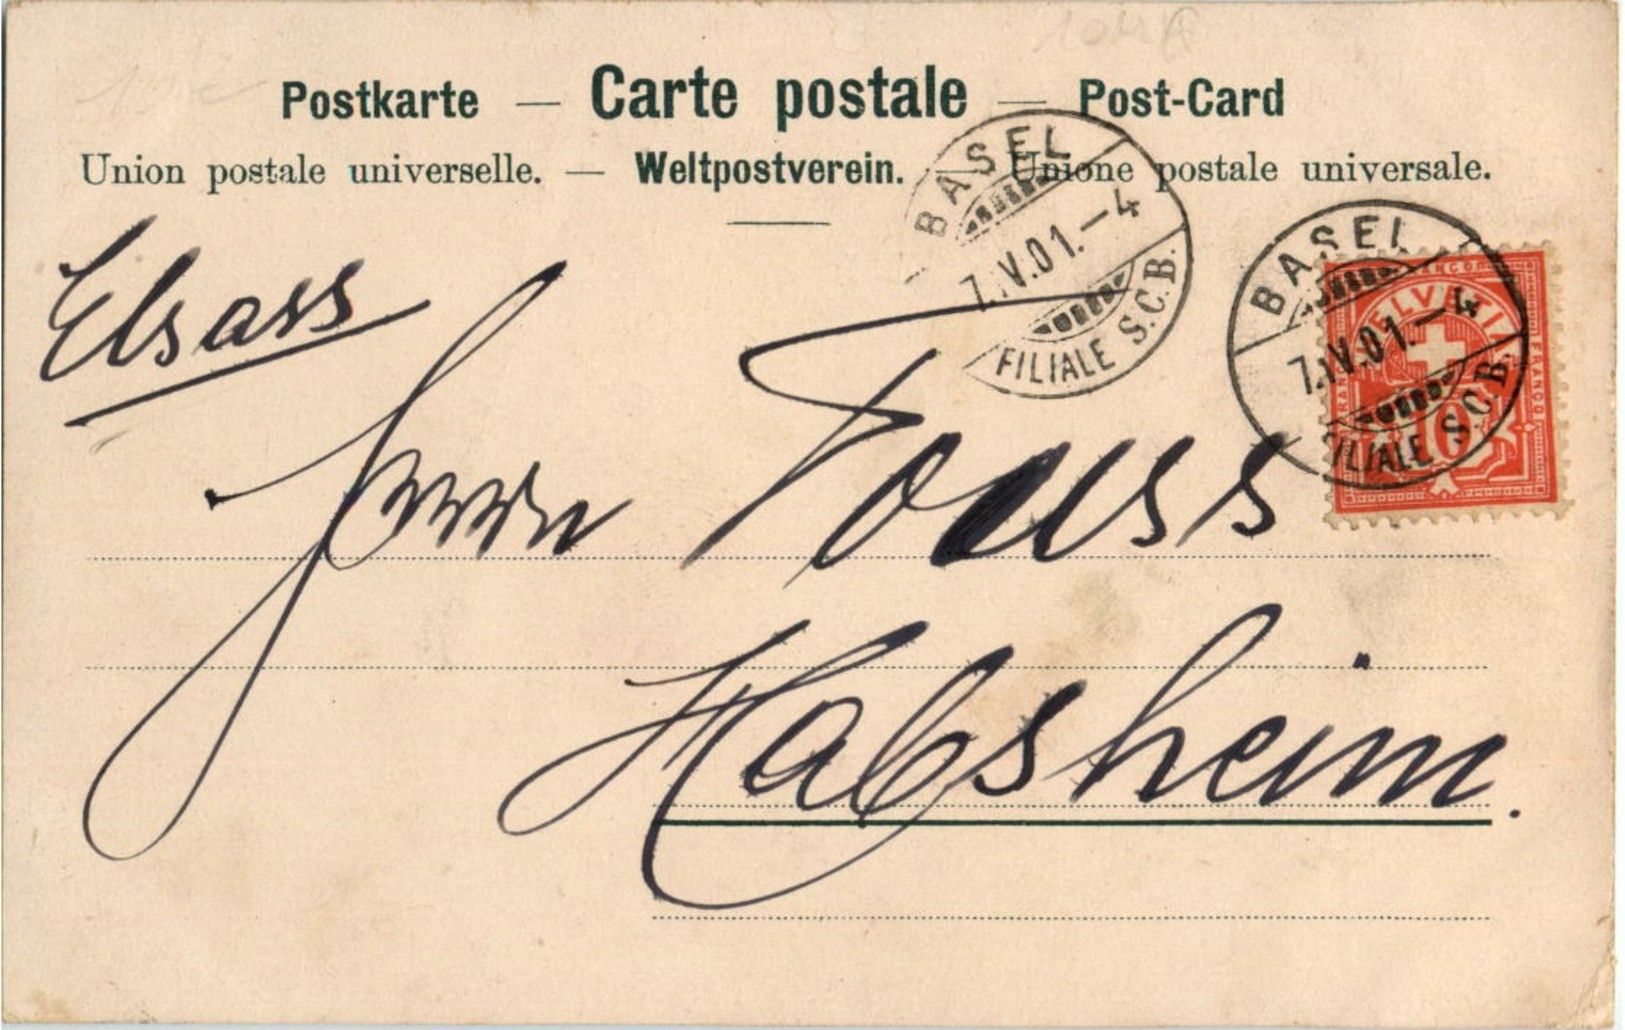 Postkarte — Carte postale — Post-Card
Union postale universelle. — Weltpostverein. — Unione postale universale.
BASEL
7.V.01.–4
FILIALE S.C.B.
BASEL
7.V.01.–4
FILIALE S.C.B.
FRANCO
HELVETIA
FRANCO
FRANCO
10
Elsass
Herrn Touss
Habsheim.